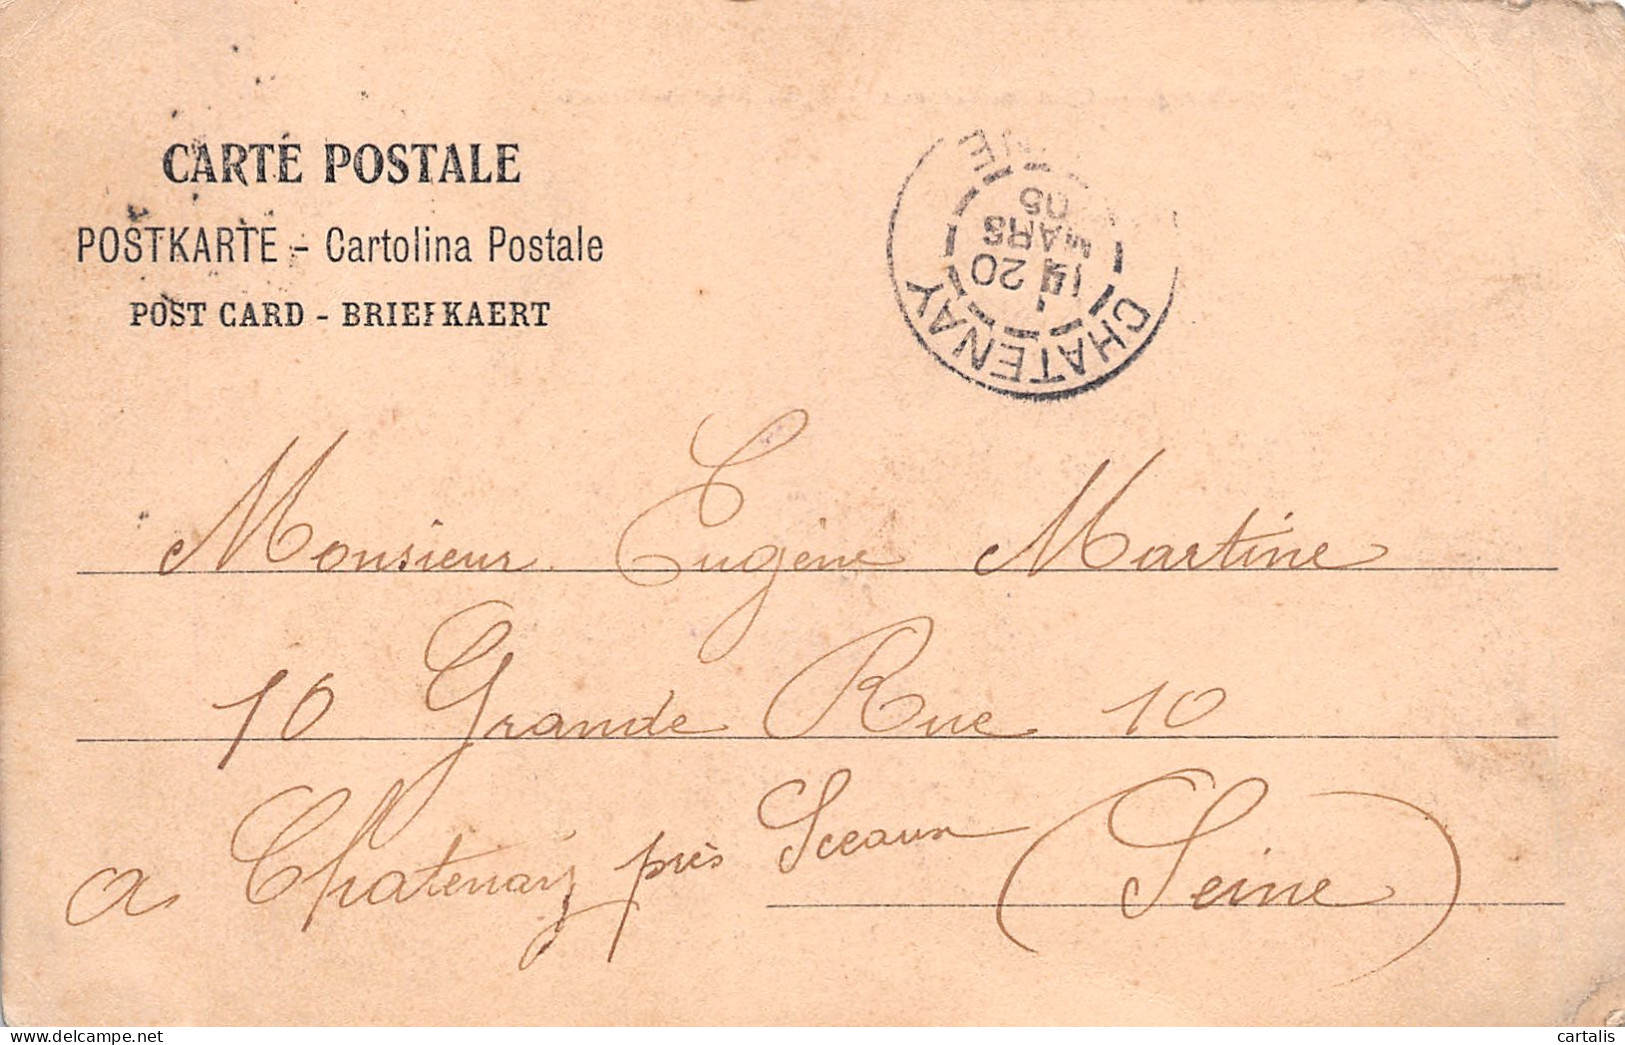 CARTE POSTALE
POSTKARTE - Cartolina Postale
POST CARD - BRIEFKAERT
CHATENAY
20
MARS
05
Monsieur Eugène Martine
10 Grande Rue 10
a Chatenay près Sceaux (Seine)
cartalis